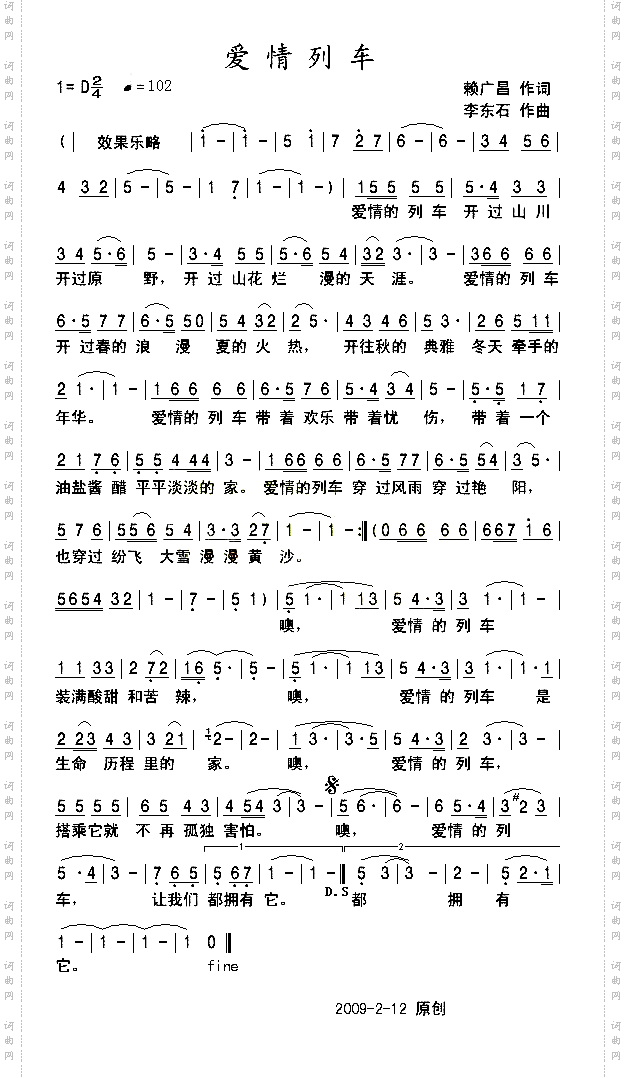 爱情列车
1=D 2/4 ♩=102 赖广昌 作词
李东石 作曲
( | 效果乐略 | 1 - | 1 - | 5 1 | 7 2 7 | 6 - | 6 - | 3 4 5 6 |
4 3 2 | 5 - | 5 - | 1 7 | 1 - | 1 - ) | 1 5 5 5 5 | 5 · 4 3 3 |
爱情的 列 车 开 过 山 川
3 4 5 · 6 | 5 - | 3 · 4 5 5 | 5 · 6 5 4 | 3 2 3 · | 3 - | 3 6 6 6 6 |
开过原 野, 开 过 山花 烂 漫的 天 涯。 爱情的 列 车
6 · 5 7 7 | 6 · 5 5 0 | 5 4 3 2 | 2 5 · | 4 3 4 6 | 5 3 · | 2 6 5 1 1 |
开 过春的 浪 漫 夏的 火 热, 开往秋的 典雅 冬天 牵手的
2 1 · | 1 - | 1 6 6 6 6 | 6 · 5 7 6 | 5 · 4 3 4 | 5 - | 5 · 5 1 7 |
年华。 爱情的 列 车 带 着 欢乐 带 着忧 伤, 带 着 一个
2 1 7 6 | 5 5 4 4 4 | 3 - | 1 6 6 6 6 | 6 · 5 6 6 | 6 · 5 5 4 | 3 5 · |
油盐酱 醋 平平淡淡的 家。 爱情的列车 穿 过风雨 穿 过艳 阳,
5 7 6 | 5 5 6 5 4 | 3 · 3 2 7 | 1 - | 1 - :‖ ( 0 6 6 6 | 6 6 7 1 6 |
也穿过 纷飞 大雪 漫 漫 黄 沙。
5 6 5 4 3 2 | 1 - | 7 - | 5 1 ) | 5 1 · | 1 1 3 | 5 4 · 3 | 3 1 · | 1 - |
噢, 爱情 的 列 车
1 1 3 3 | 2 7 2 | 1 6 5 · | 5 - | 5 1 · | 1 1 3 | 5 4 · 3 | 3 1 · | 1 · 1 |
装满酸甜 和苦 辣, 噢, 爱情 的 列车 是
2 2 3 4 3 | 3 2 1 | 1 2 - | 2 - | 1 3 · | 3 · 5 | 5 4 · 3 | 2 3 · | 3 - |
生命 历程 里的 家。 噢, 爱情 的 列 车,
5 5 5 5 | 6 5 4 3 | 4 5 4 3 | 3 - | 5 6 · | 6 - | 6 5 · 4 | 3 #2 3 |
搭乘它就 不 再 孤独 害怕。 噢, 爱情 的 列
1 2
5 · 4 | 3 - | 7 6 5 | 5 6 7 | 1 - | 1 - ‖ 5 3 | 3 - | 2 - | 5 2 · 1 |
车, 让我们 都拥有 它。 D.S 都 拥 有
1 - | 1 - | 1 - | 1 0 ‖
它。 fine
2009-2-12 原创